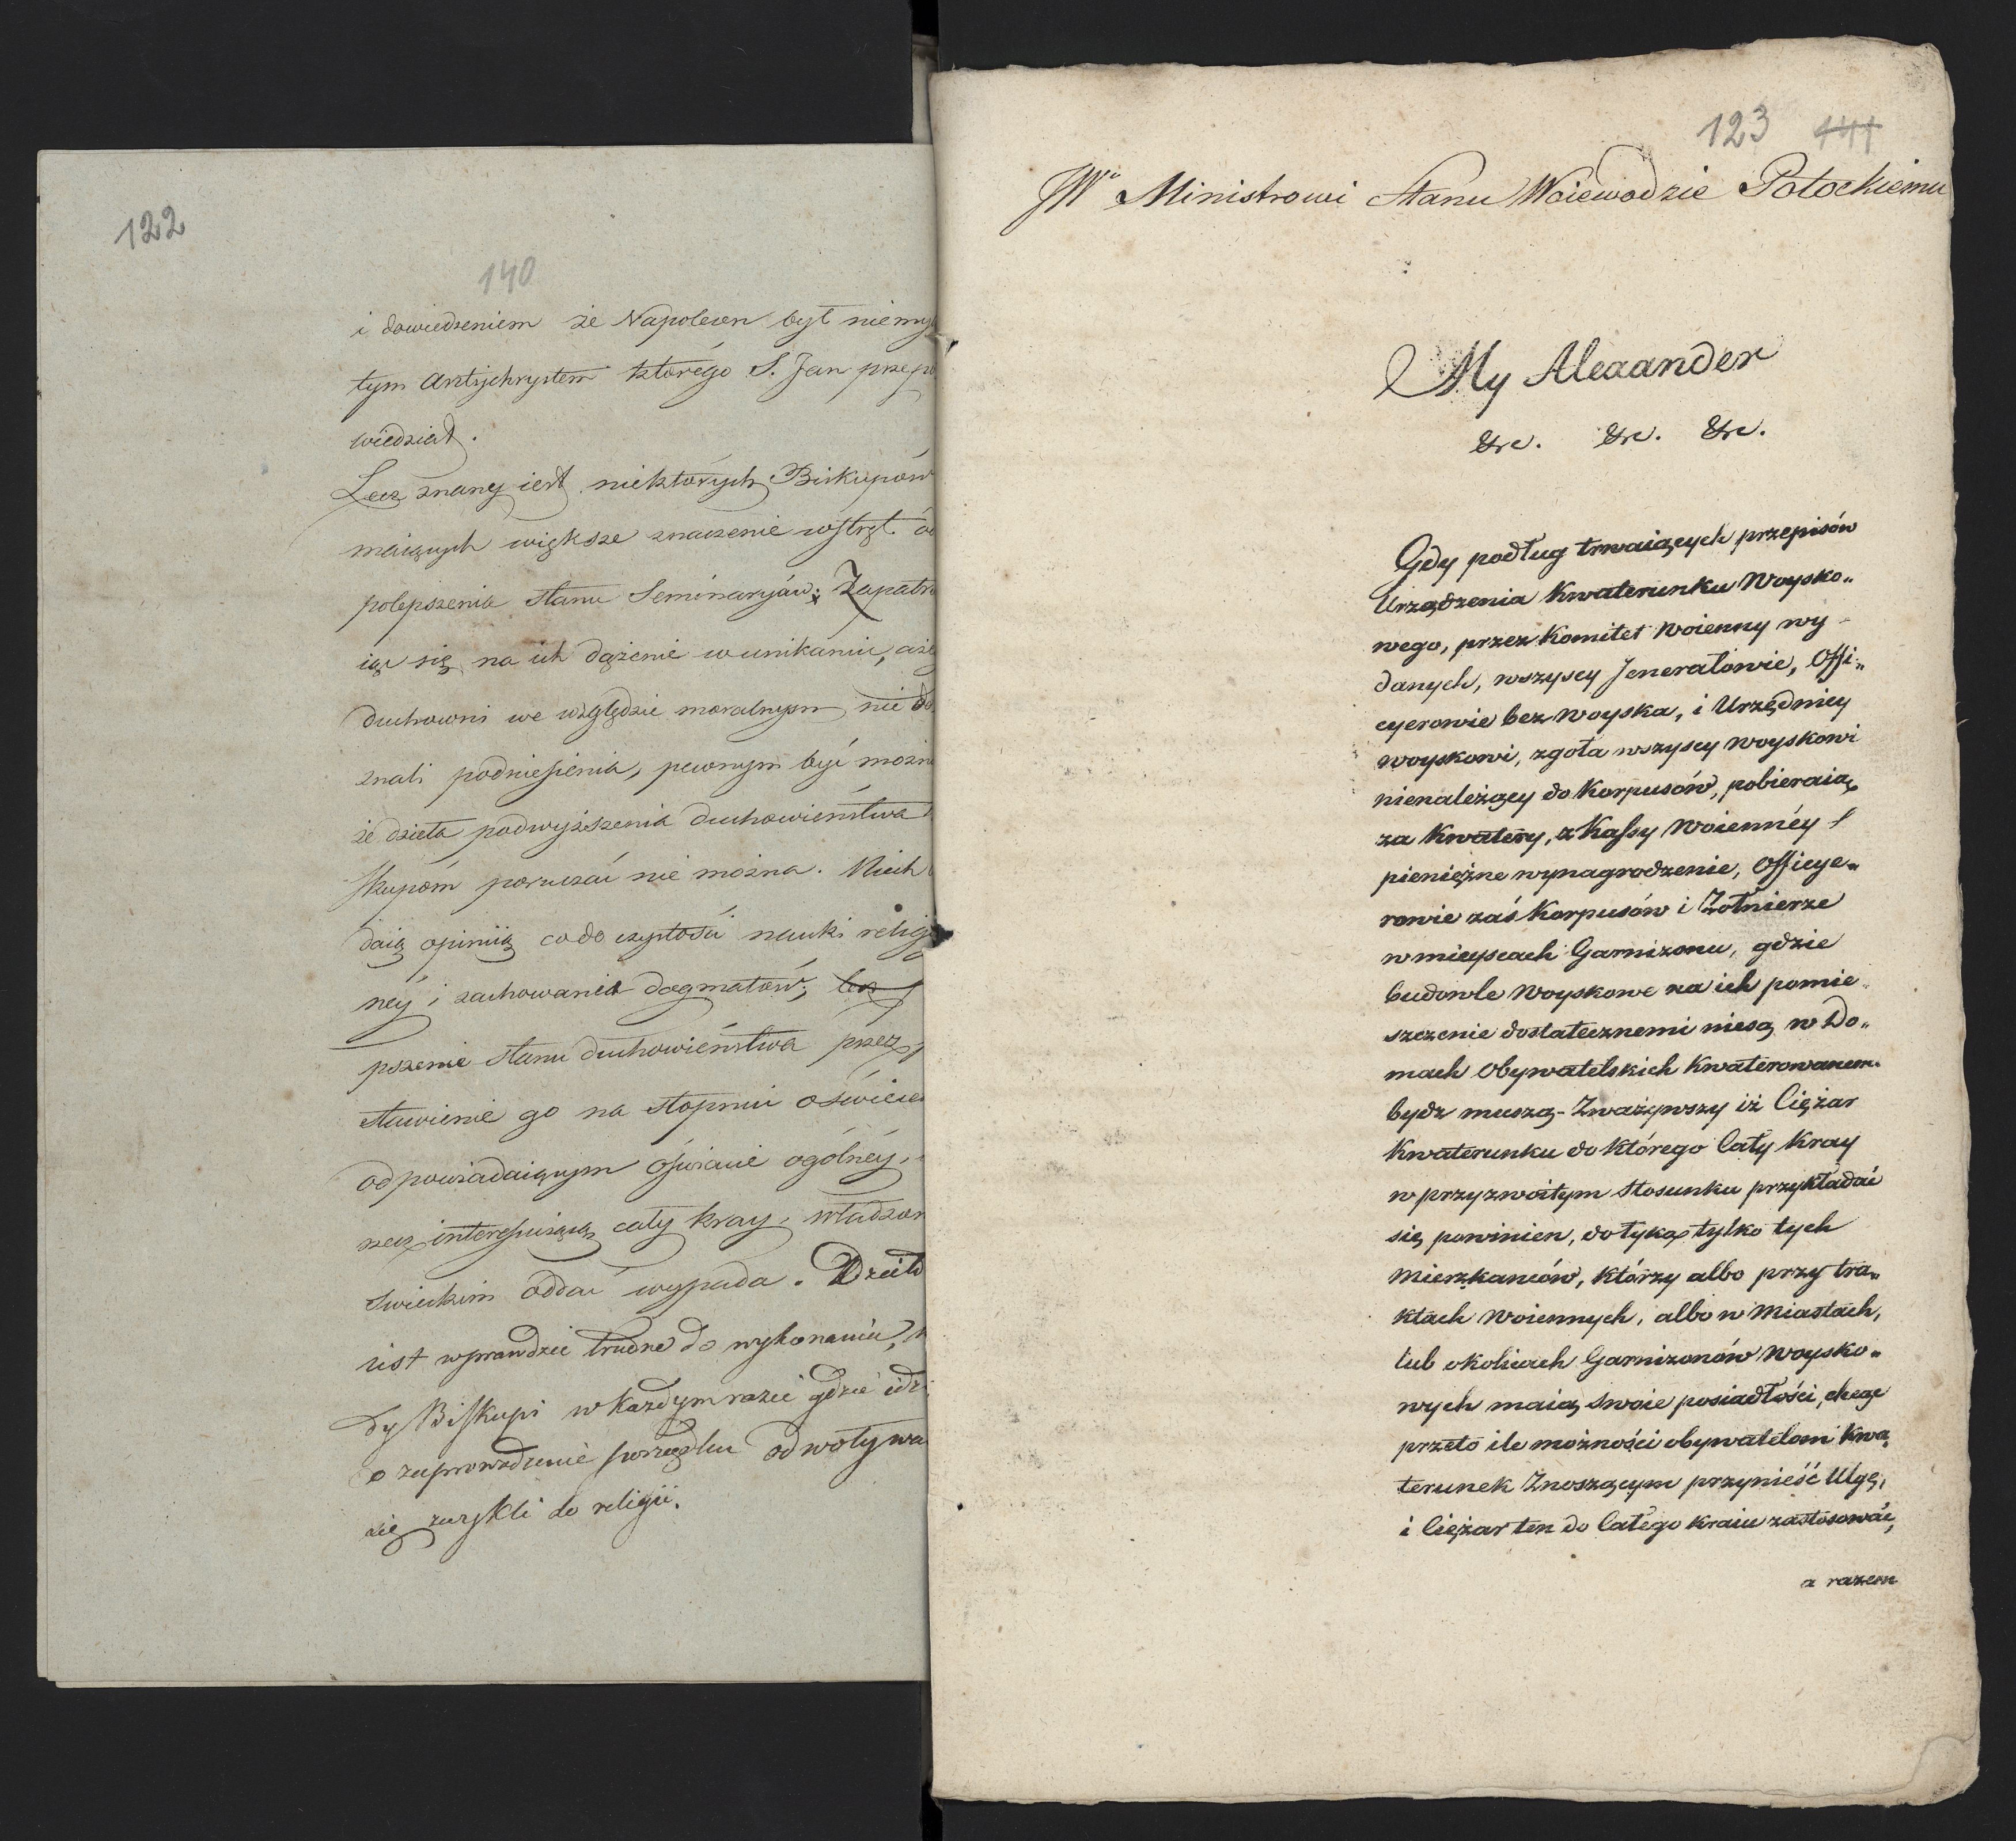 122
140
i dowiedzeniem że Napoleon był niemy
tym Antychrystem którego S. Jan przepo
wiedział.
Lecz znany iest niektórych Biskupów
maiących większe znaczenie wstręt
polepszenia stanu Seminaryów; Zapatru
iąc się na ich dążenie w unikaniu, aże
duchowni we względzie moralnym nie do
znali podniesienia, pewnym być można
że dzieła podwyższenia duchowieństwa
skupom poruczać nie można. Niech
daią opiniią co do czystości nauki religi
ney i zachowania dogmatów,
pszenie stanu duchowieństwa przez
stawienie go na stopniu oświece
odpowiadaiącym oświacie ogólney,
rzecz interessuiącą cały kray, władzom
swieckim oddać wypada. Dzieło
iest wprawdzie trudne do wykonania,
dy Biskupi w każdym razie gdzie idzi
o zaprowadzenie porządku odwoływa
się zwykli do religii.
123 141
JW Ministrowi Stanu Woiewodzie Potockiemu
My Alexander
&c. &c. &c.
Gdy podług trwaiących przepisów
Urządzenia Kwaterunku Woysko„
wego, przez Komitet Woienny wy-
danych, wszyscy Jenerałowie, Offi„
cyerowie bez Woyska, i Urzędnicy
woyskowi, zgoła wszyscy woyskowi
nienależący do Korpusów, pobieraią
za Kwatery, z Kassy Woienney
pieniężne wynagrodzenie, Officye„
rowie zaś Korpusów i Żołnierze
w mieyscach Garnizonu, gdzie
budowle Woyskowe na ich pomie„
szczenie dostatecznemi niesą w Do„
mach Obywatelskich Kwaterowanem
bydz muszą - Zważywszy iż Ciężar
Kwaterunku do którego Cały Kray
w przyzwoitym stosunku przykładać
się powinien, dotyka tylko tych
Mieszkańców, którzy albo przy tra„
ktach Woiennych, albo w Miastach,
lub okolicach Garnizonów Woysko„
wych maią swoie posiadłości, chcąc
przeto ile możności obywatelom Kwa„
terunek Znoszącym przynieść Ulgę,
i Ciężar ten do Całego Kraiu zastosować,
a razem